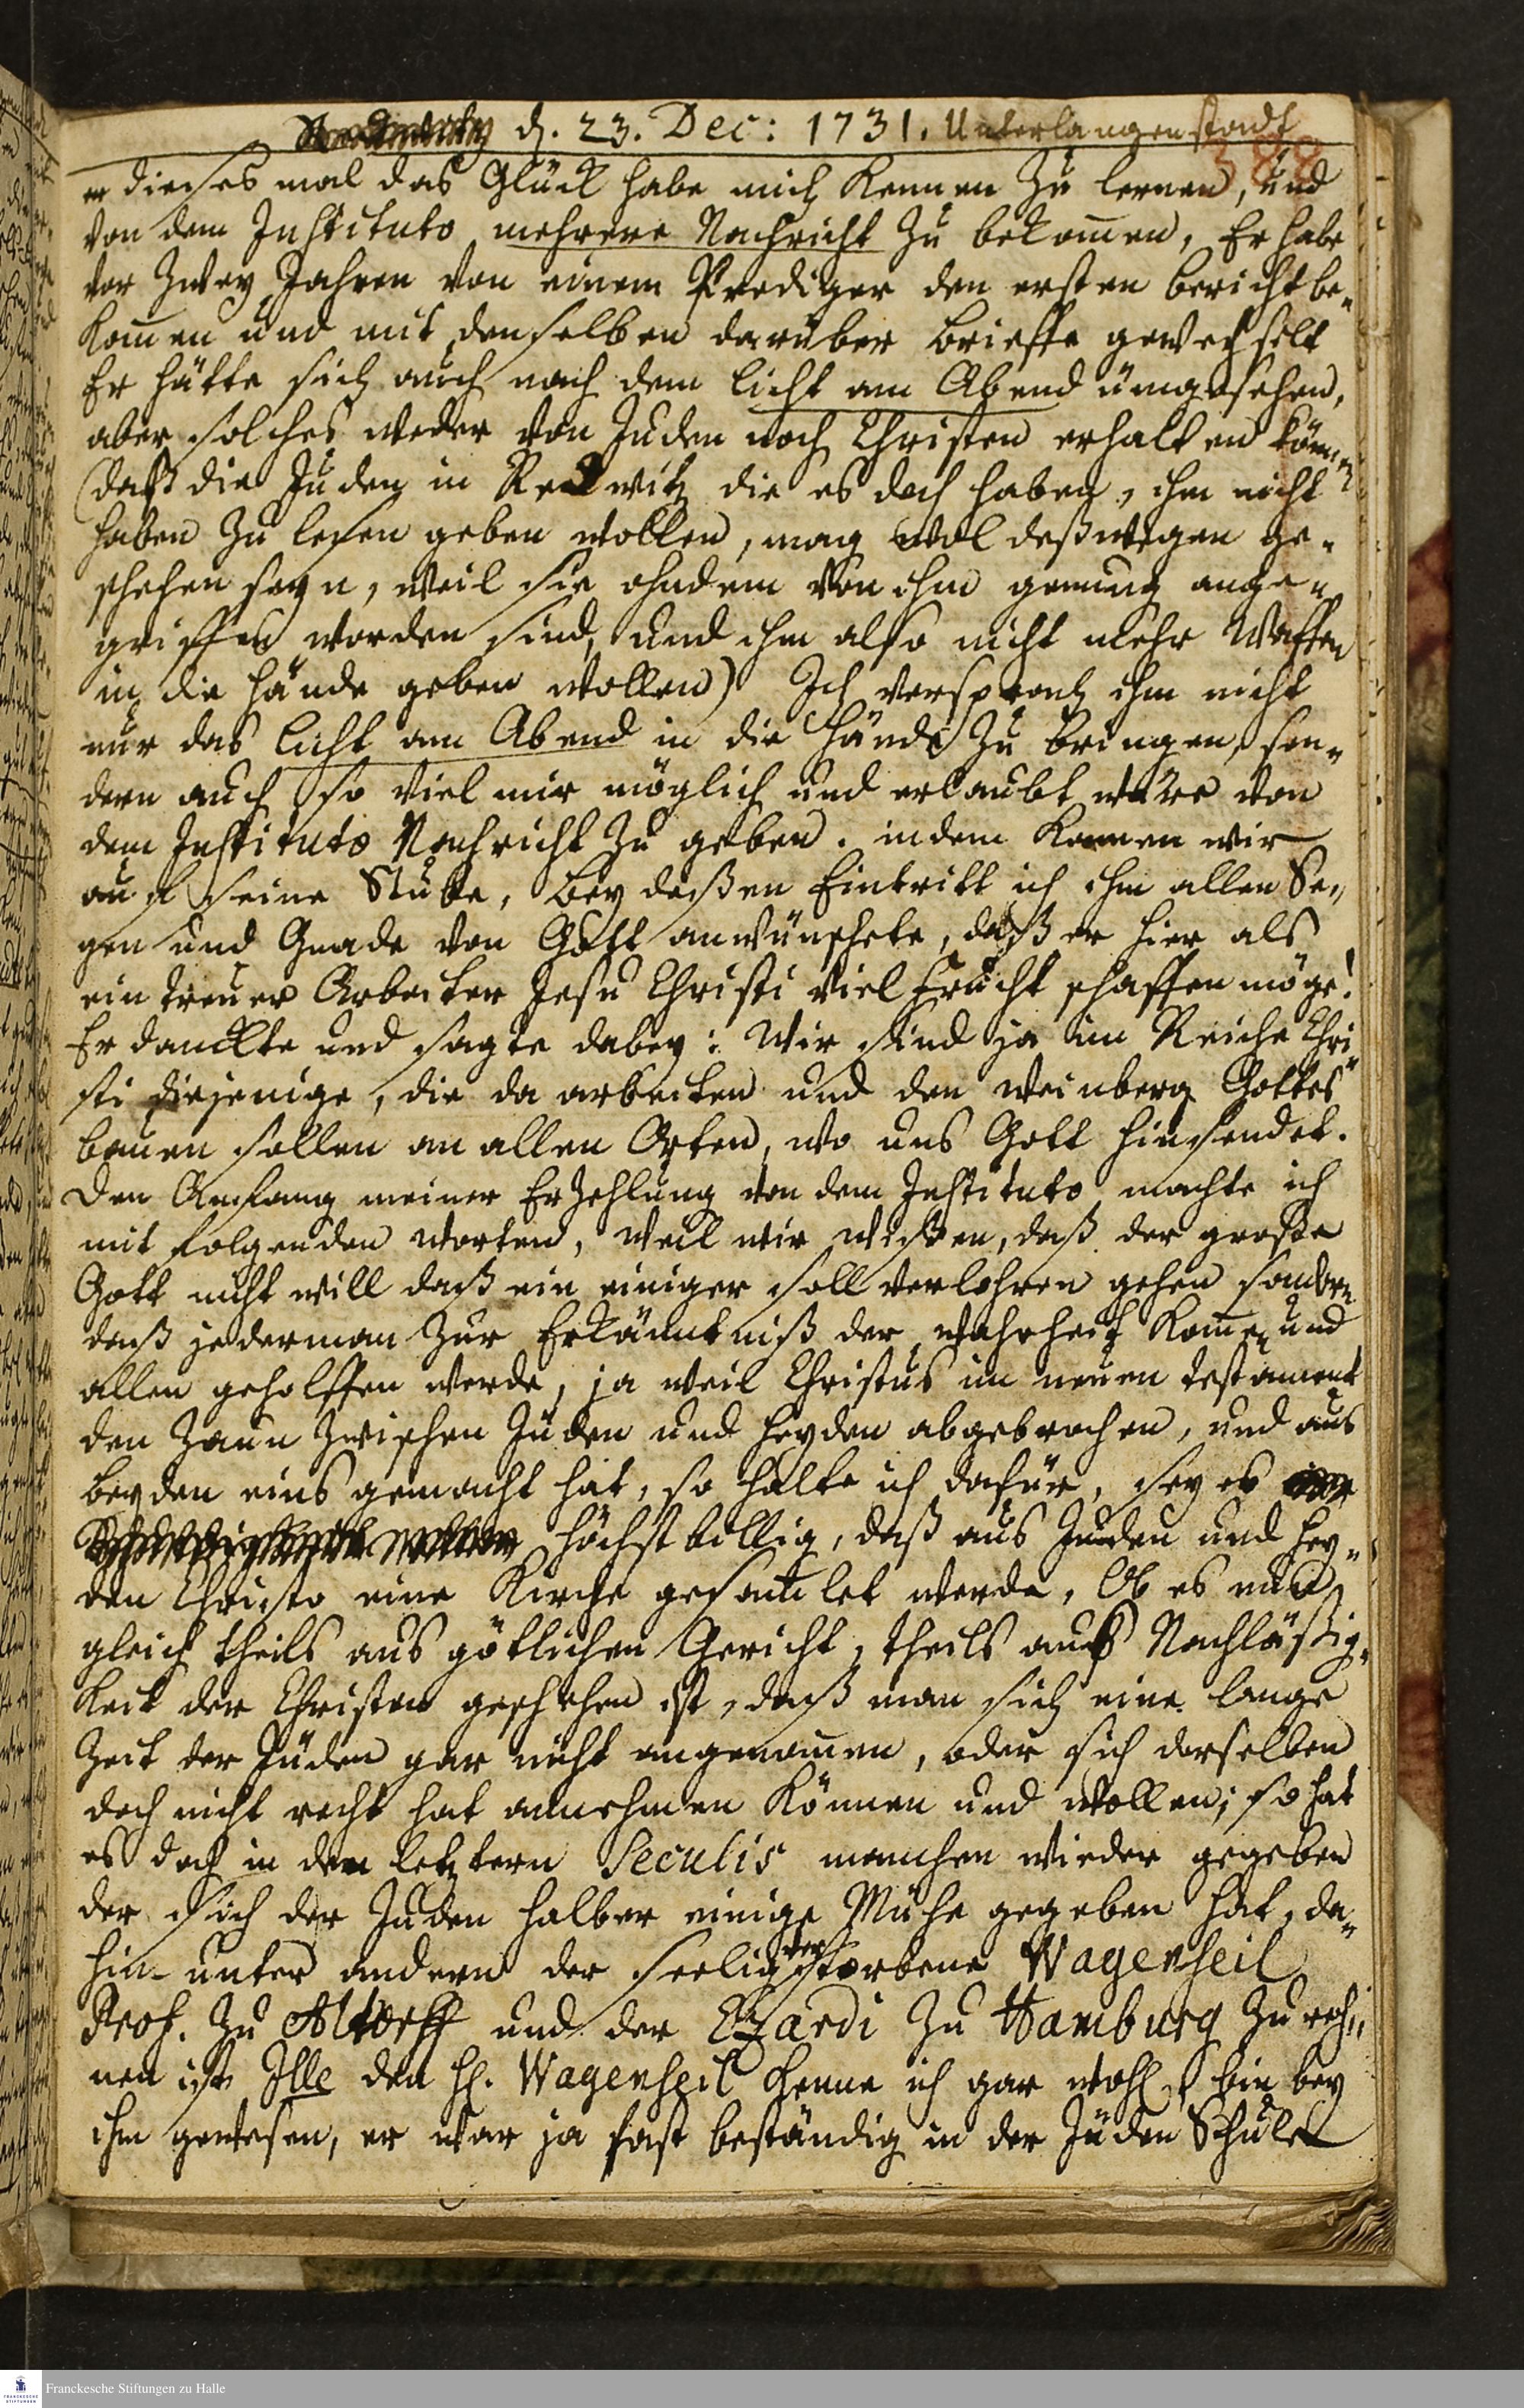 d. 23. Dec: 1731. Unterlangenstadt
388
er dieses mal das Glück habe mich kennen zu lernen, und
von dem Instituto mehrere Nachricht zu bekom̄en, Er habe
vor zwey Jahren von einem Prediger den ersten bericht be-
kom̄en und mit denselben darüber brieffe gewechselt
Er hätte sich auch nach dem licht am Abend ümgesehen,
aber solches weder von Juden noch Christen erhalten können
(daß die Juden in Redwitz die es doch haben, ihm nicht
haben zu lesen geben wollen, mag wol deßwegen ge-
schehen seyn, weil sie ohndem von ihm genung ange-
griffen worden sind, und ihm also nicht mehr Waffen
in die hände geben wollen) Ich versprach ihm nicht
nur das licht am Abend in die Hände zu bringen, son-
dern auch so viel mir möglich und erlaubt wäre von
dem Instituto Nachricht zu geben. indem kamen wir
auf seine Stube, bey deßen Eintritt ich ihm allen Se-
gen und Gnade von Gott anwünschete, daß er hier als
ein treuer Arbeiter Jesu Christi viel frucht schaffen möge!
Er danckte und sagte dabey: Wir sind ja im Reiche Chri-
sti diejenige, die da arbeiten und den weinberg Gottes
bauen sollen an allen Orten, wo uns Gott hinsendet.
Den Anfang meiner Erzehlung von dem Instituto machte ich
mit folgenden worten, weil wir wißen, daß der große
Gott nicht will daß ein einiger soll verlohren gehen sondern
daß jederman zur Erkänntniß der wahrheit kom̄e, und
allen geholffen werde, ja weil Christus im neuen testament
den Zaun zwischen Juden und heyden abgebrochen, und aus
beyden eins gemacht hat, so halte ich dafür, sey es
höchst billig, daß aus Juden und hey-
den Christo eine Kirche gesam̄let werde, Ob es nun
gleich theils aus götlichen Gericht, theils aus Nachläßig-
keit der Christen geschehen ist, daß man sich eine lange
Zeit der Juden gar nicht angenom̄en, oder sich derselben
doch nicht recht hat annehmen können und wollen; so hat
es doch in den letztern Seculis manchen wieder gegeben
der sich der Juden halber einige Mühe gegeben hat, da-
hin unter andern der seelig verstorbene Wagenseil
Prof. zu Altorff und der Ezardi zu Hamburg zu rech-
nen ist. Ille den H. Wagenseil kenne ich gar wohl, bin bey
ihm gewesen, er war ja fast beständig in der Juden Schule
Franckesche Stiftungen zu Halle